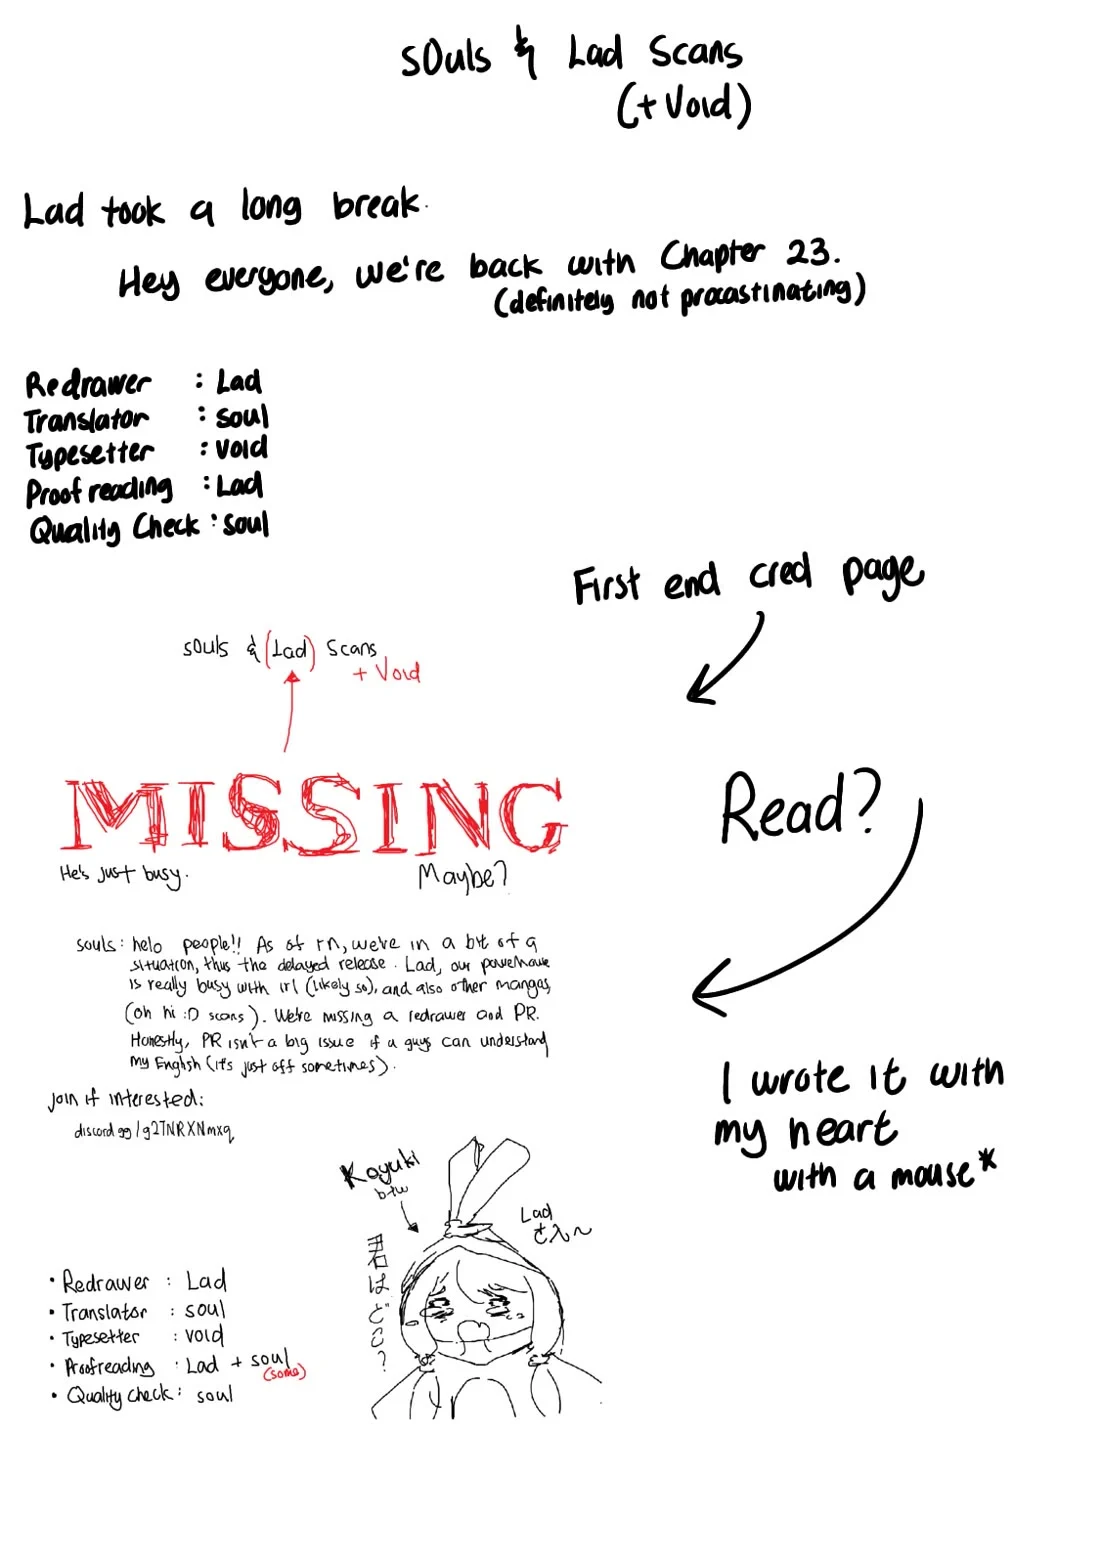 sOuls & Lad Scans
(+ Void)
Lad took a long break.
Hey everyone, we're back with Chapter 23.
(definitely not procastinating)
Redrawer : Lad
Translator : soul
Typesetter : void
Proof reading : Lad
Quality Check : soul
First end cred page
souls & (Lad) Scans
+ Void
MISSING
He's just busy.
Maybe?
Read?
souls : helo people!! As of rn, we're in a bit of a
situation, thus the delayed release. Lad, our powerhouse
is really busy with irl (likely so), and also other mangas,
(oh hi :D scans). We're missing a redrawer and PR.
Honestly, PR isn't a big issue if a guys can understand
my English (it's just off sometimes).
Join if interested:
discord.gg/g2TNRXNmxq
I wrote it with
my heart
with a mouse*
Koyuki
btw
Lad
さん〜
君はどこ?
• Redrawer : Lad
• Translator : soul
• Typesetter : void
• Proofreading : Lad + soul
(some)
• Quality check : soul